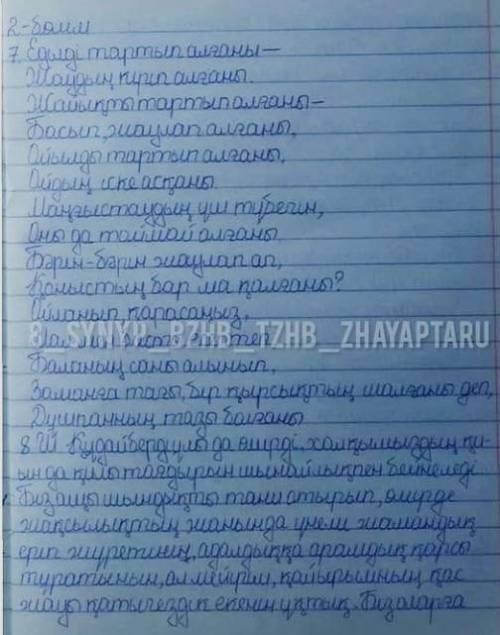 2-бөлім
7. Еділді тартып алғаны—
Жаудың кіріп алғаны.
Жайықты тартып алғаны—
Басып, жаулап алғаны,
Ойылды тартып алғаны,
Ойдың іске асқаны.
Маңғыстаудың үш түбегін,
Оны да таймай алғаны.
Бәрін-бәрін жаулап ап,
Қоныстың бар ма қалғаны?
Айланып қарасаңыз,
8_SYNYP_BZHB_TZHB_ZHAYAPTARU
Мал мен басты есептеп,
Баланың саны алынып,
Заманға тағы, бір қырсықтың шалғаны деп,
Дұшпанның тазы болғаны
8 Ш. Құдайбердіұлы да өмірді. халқымыздың қи-
ын да қилы тағдырын шынайлықпен бейнеледі
Біз ащы шындықты тани отырып, өмірде
жақсылықтың жанында үнемі жамандық
еріп жүретінін, адалдыққа арамдық қарсы
тұратынын, ал мейірім, қайырымның қас
жауы қатыгездік екенін ұқтық. Біз оларға